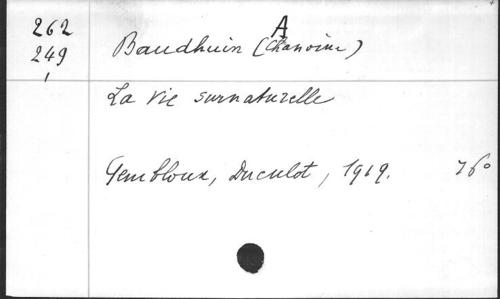 262
249
A
Baudhuin (Chanoine)
La vie surnaturelle
Gembloux, Duculot, 1919. in 16°